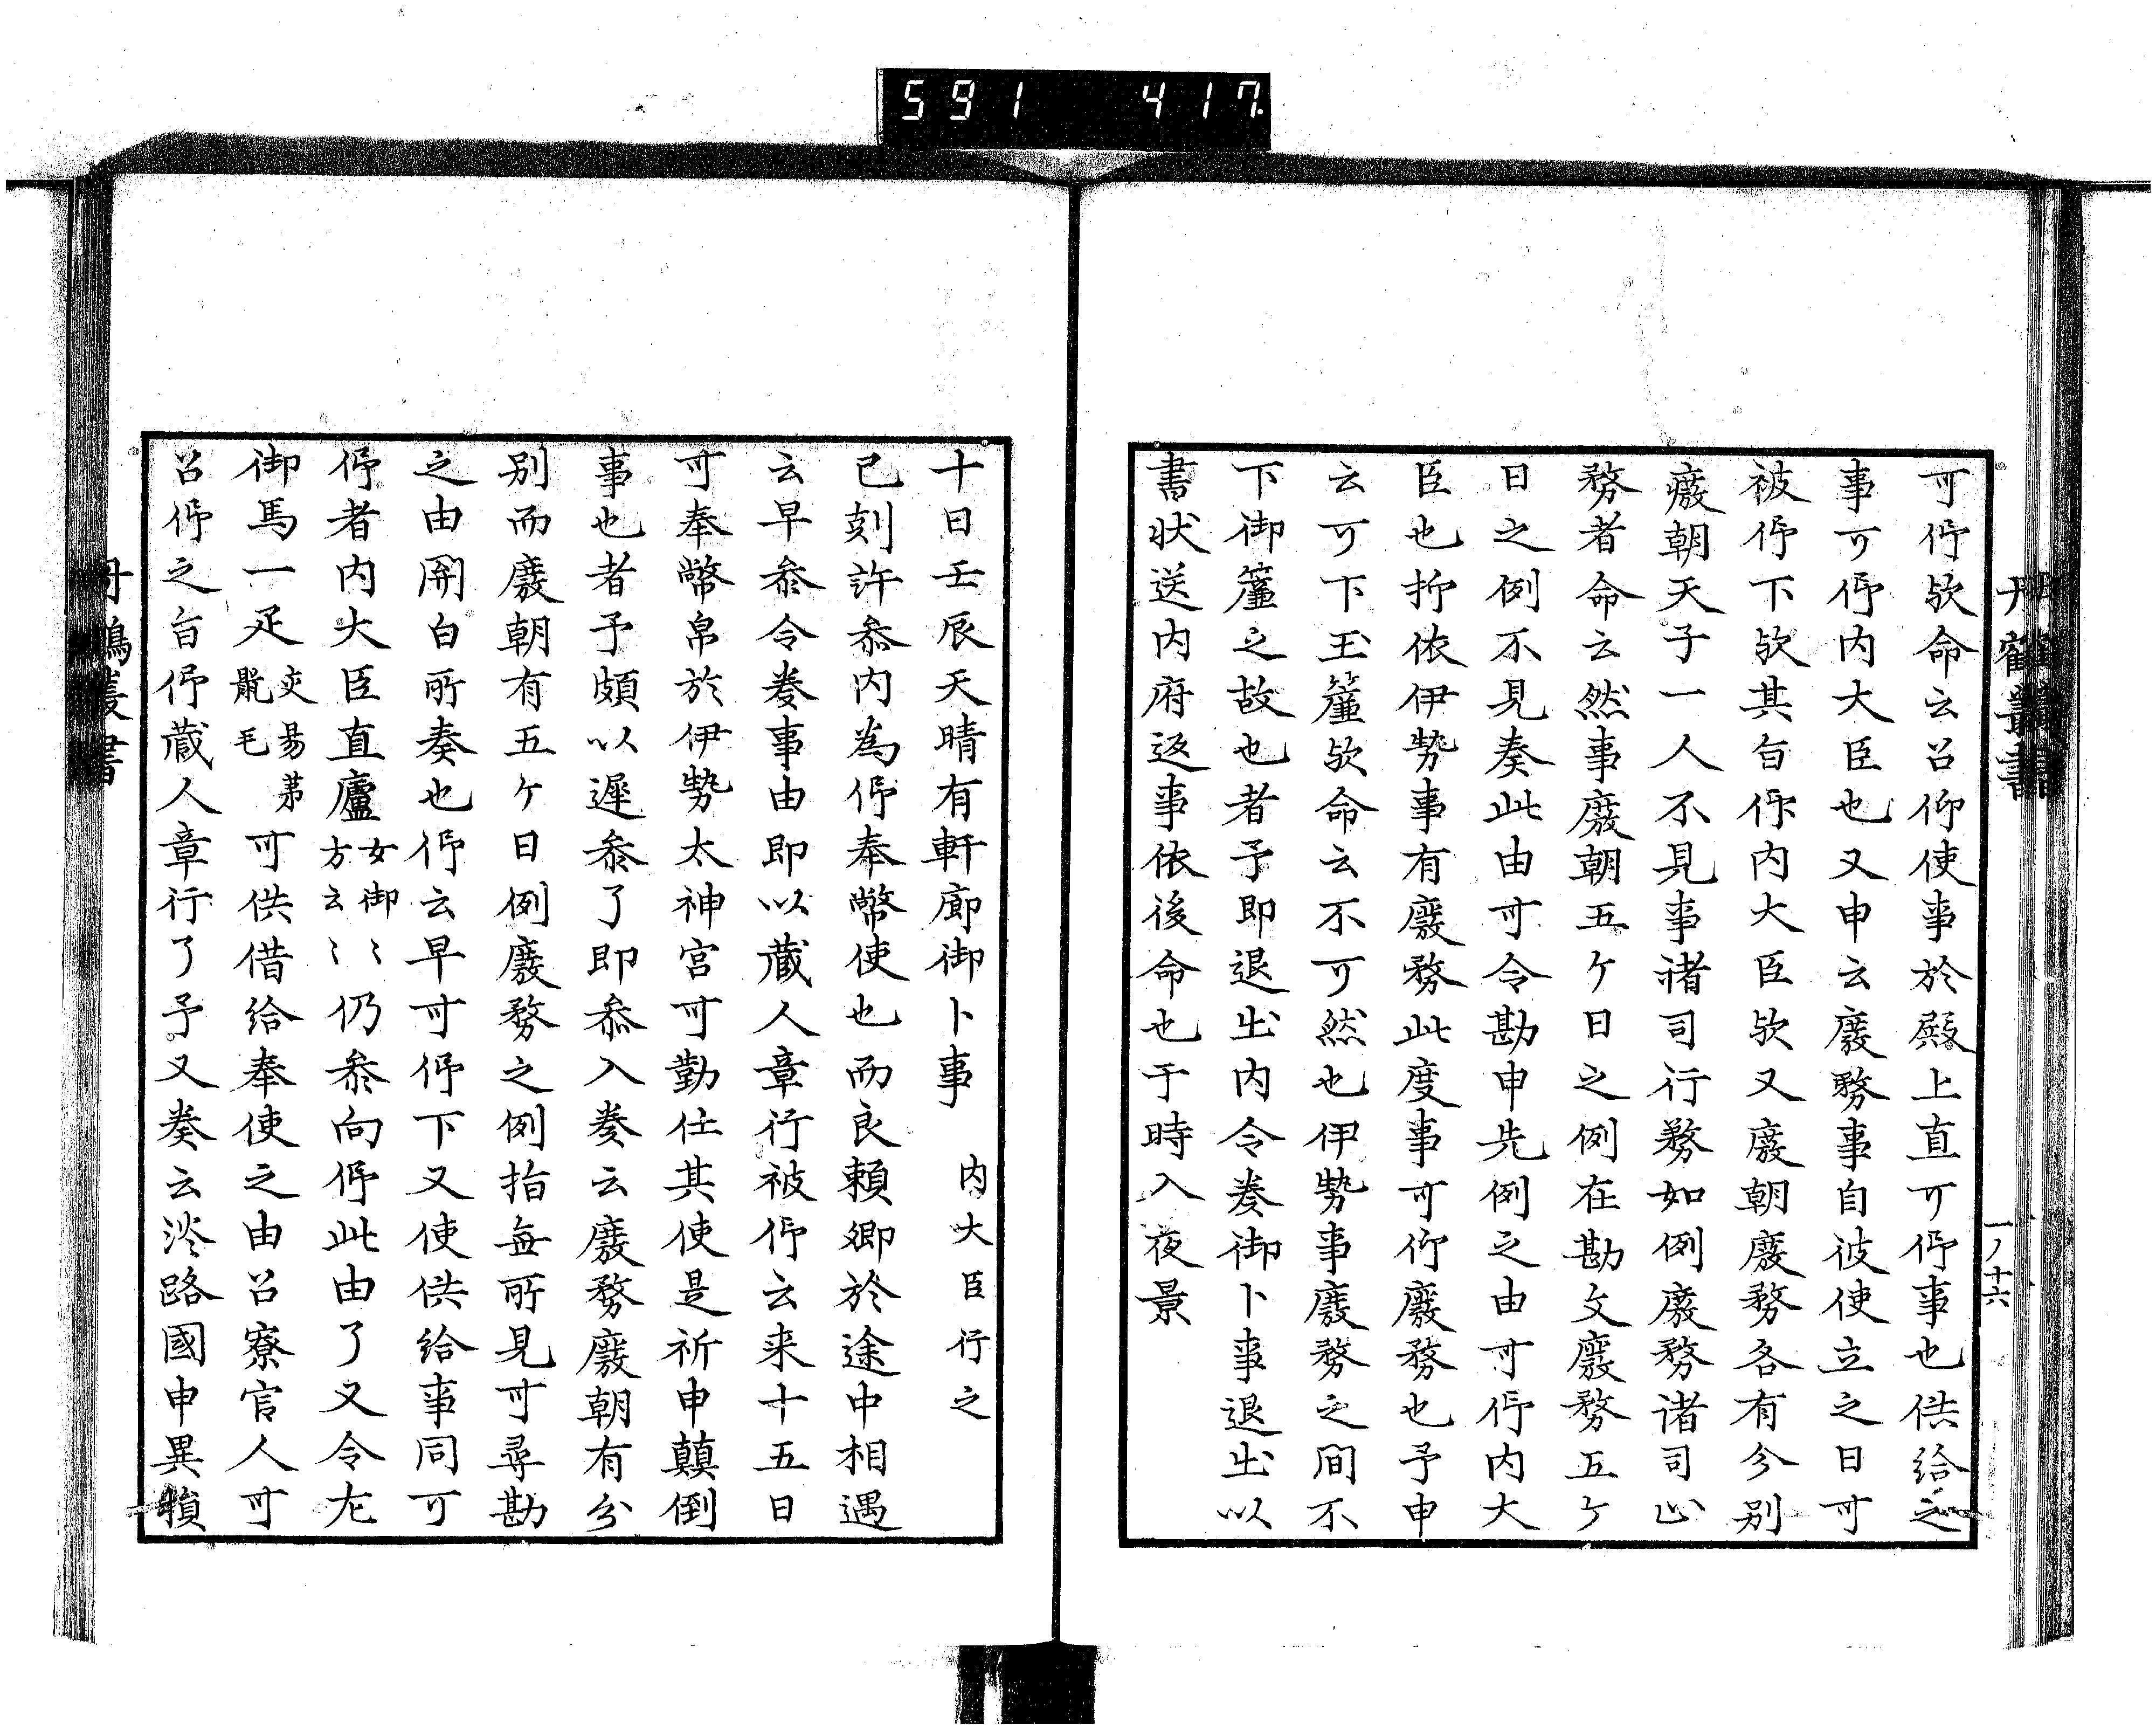 591 417
丹鶴叢書
一ノ十六
可仰欤命云召仰使事於殿上直可仰事也供給之
事可仰内大臣也又申云廢務事自彼使立之日可
被仰下欤其旨仰内大臣欤又廢朝廢務各有分別
廢朝天子一人不見事諸司行務如例廢務諸司止
務者命云然事廢朝五ケ日之例在勘文廢務五ケ
日之例不見奏此由可令勘申先例之由可仰内大
臣也抑依伊勢事有廢務此度事可仰廢務也予申
云可下玉簾欤命云不可然也伊勢事廢務之間不
下御簾之故也者予即退出内令奏御卜事退出以
書状送内府返事依後命也于時入夜景
十日壬辰天晴有軒廊御卜事 内大臣行之
已刻許参内為仰奉幣使也而良頼卿於途中相遇
云早参令奏事由即以蔵人章行被仰云来十五日
可奉幣帛於伊勢太神宮可勤仕其使是祈申顛倒
事也者予頗以遅参了即参入奏云廢務廢朝有分
別而廢朝有五ケ日例廢務之例指無所見可尋勘
之由関白所奏也仰云早可仰下又使供給事同可
仰者内大臣直廬女御方云〻仍参向仰此由了又令尤
御馬一疋㚑易苐鬣毛可供借給奉使之由召寮官人可
召仰之旨仰蔵人章行了予又奏云淡路國申異損
丹鶴叢書